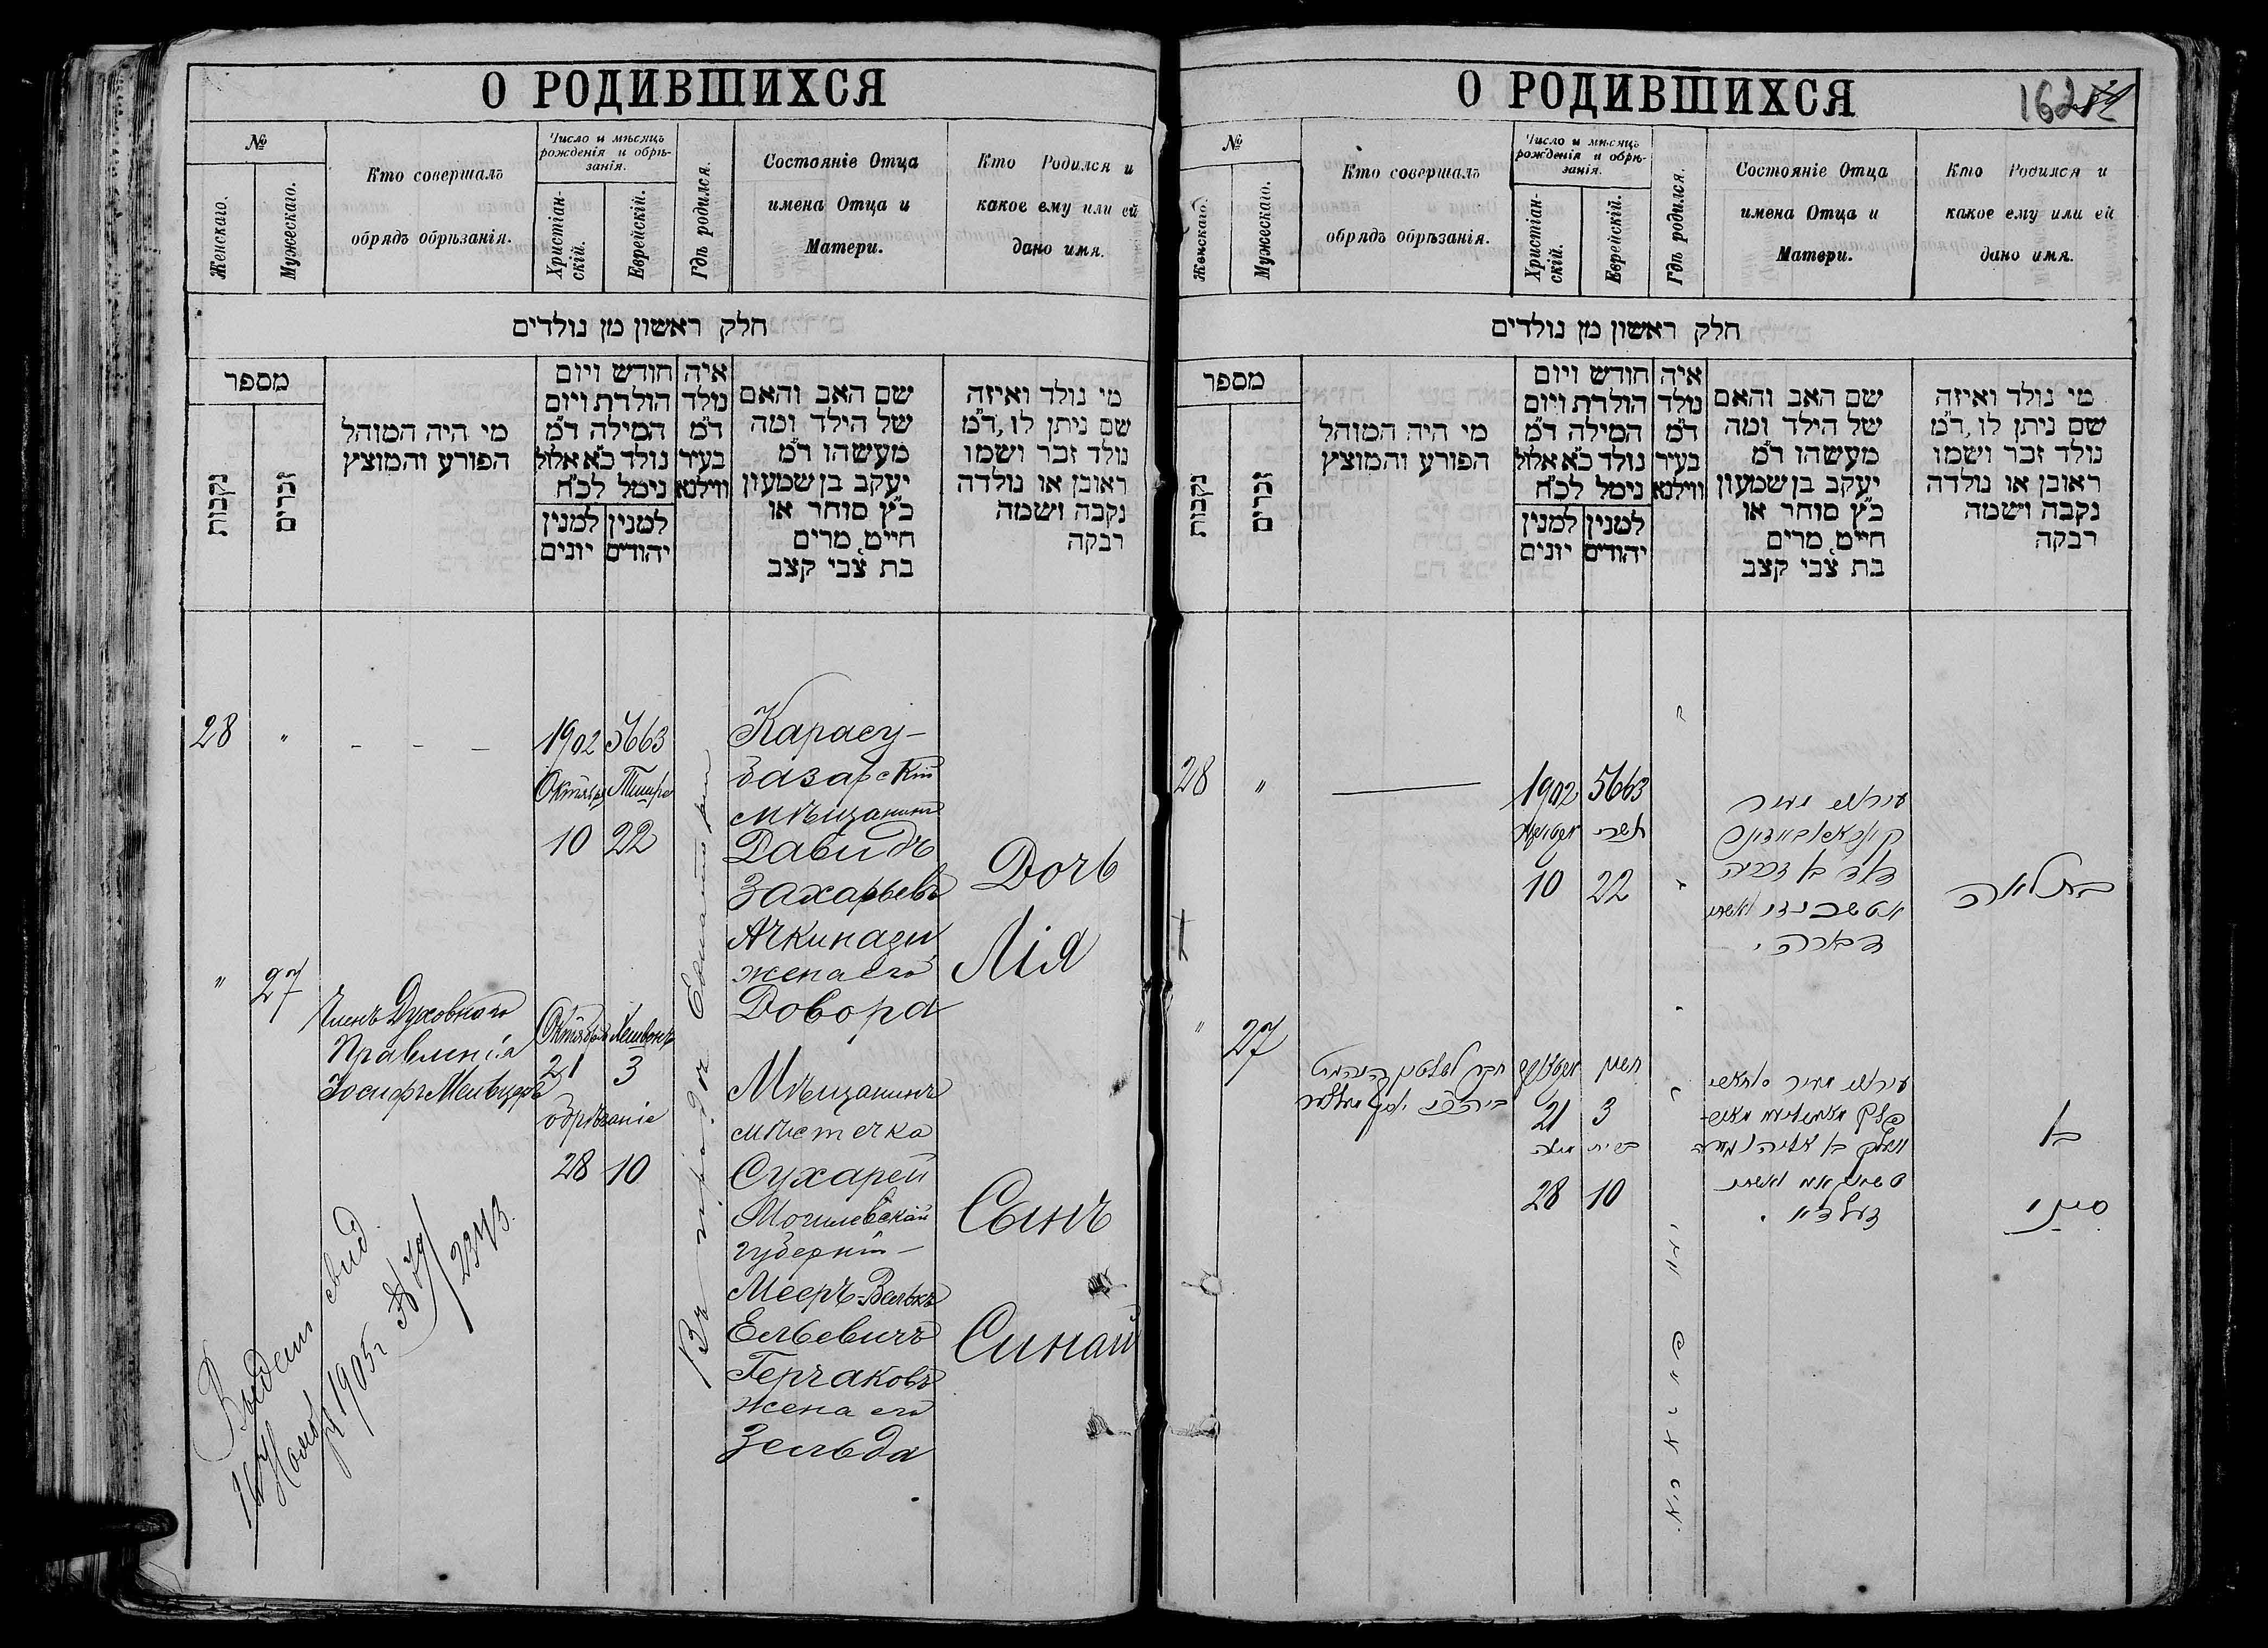 О РОДИВШИХСЯ
№
Женскаго.
Мужескаго.
Кто совершалъ
обрядъ обрѣзанія.
Число и мѣсяцъ
рожденія и обрѣ-
занія.
Христіан-
скій.
Еврейскій.
Гдѣ родился.
Состояніе Отца
имена Отца и
Матери.
Кто Родился и
какое ему или ей
дано имя.
חלק ראשון מן נולדים
מספר
נקבות
זכרים
מי היה המוהל
הפורע והמוצץ
חודש ויום
הולדת ויום
המילה ד״מ
נולד כ״א אלול
נימל לכ״ח
למנין יונים
למנין יהודים
איה
נולד
ד״מ
בעיר
ווילנא
שם האב והאם
של הילד ומה
מעשהו ד״מ
יעקב בן שמעון
כ״ץ סוחר או
חייט, מרים
בת צבי קצב
מי נולד ואיזה
שם ניתן לו, ד״מ
נולד זכר ושמו
ראובן או נולדה
נקבה ושמה
רבקה
28
"
- - -
1902 5663
Октябрь Тишре
10 22
Карасу-
базарскій
мѣщанинъ
Давидъ
Захарьевъ
Ачкинази
жена его
Довора
Дочь
Лія
"
27
Членъ Духовнаго
Правленія
Іосифъ
Октябрь Хешвонъ
21 3
обрѣзаніе
28 10
Въ городѣ
Мѣщанинъ
мѣстечка
Сухарей
Могилевской
губерніи
Мееръ-Велькъ
Ельевичъ
Герчаковъ
жена его
Зельда
Сынъ
Синай
Выданъ свид.
Нояб 1905 г
№ 79/2343.
О РОДИВШИХСЯ
162
№
Женскаго.
Мужескаго.
Кто совершалъ
обрядъ обрѣзанія.
Число и мѣсяцъ
рожденія и обрѣ-
занія.
Христіан-
скій.
Еврейскій.
Гдѣ родился.
Состояніе Отца
имена Отца и
Матери.
Кто Родился и
какое ему или ей
дано имя.
חלק ראשון מן נולדים
מספר
נקבות
זכרים
מי היה המוהל
הפורע והמוצץ
חודש ויום
הולדת ויום
המילה ד״מ
נולד כ״א אלול
נימל לכ״ח
למנין יונים
למנין יהודים
איה
נולד
ד״מ
בעיר
ווילנא
שם האב והאם
של הילד ומה
מעשהו ד״מ
יעקב בן שמעון
כ״ץ סוחר או
חייט, מרים
בת צבי קצב
מי נולד ואיזה
שם ניתן לו, ד״מ
נולד זכר ושמו
ראובן או נולדה
נקבה ושמה
רבקה
28
"
1902 5663
תשרי
10 22
דוד בן זכריה
דבורה
בת לאה
"
27
21 3
ברית מילה
28 10
זעלדא
בן
סיני